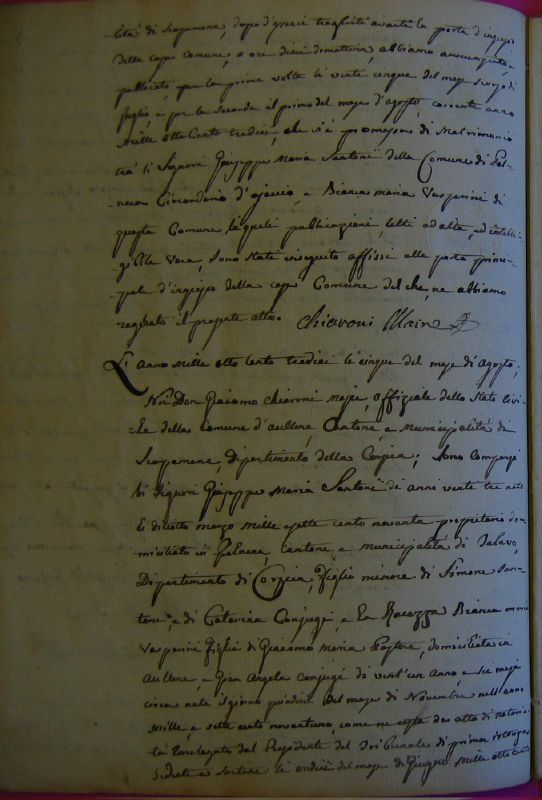 lità di Scopamena, dopo d'essere trasferiti avanti la porta d'ingresso
della casa comune, a ore dieci di mattina, abbiamo annunziato, e
publicato per la prima volta li vente cinque del mese scorso di
luglio e per la seconda il primo del mese d'agosto, corrente anno
Mille otto Cento tredici, che vi è promessa di Matrimonio
trà li Signori Giuseppe Maria Santoni della Comune di Pal-
neca Circondario d'ajaccio, e Bianca maria Vasperini di
questa Comune, le quali publicazioni, letti ad alta, ed intelli-
gibile voce, sono state inseguito affissi alla porta princi-
pale d'ingresso della casa Comune del che, ne abbiamo
regitato il presente atto. Chiaroni Maire
L'anno mille otto Cento tredici le cinque del mese di agosto,
Noi Don Giacomo Chiaroni maire, offiziale dello Stato Civi-
le della Comune d'aullene, Cantone, e municipalità di
Scopamene, Dipartimento della Corsica; Sono Comparsi
li Signori Giuseppe Maria Santoni de anni vente tre nato
li diciotto marzo mille e sette cento novanta proprietario do-
miciliato in Palneca, Cantone, e municipalità di Talavo,
Dipartimento di Corsica, figlio minore di Simone San-
toni, e di Catarina Conjugi, e la Ragazza Bianca maria
Vasperini figlia di Giacomo Maria Pastore, domiciliata in
Aullene, e Gian Angela conjugi di vent'un anno e sei mesi
circa nata il giorno quindici del mese di Novembre nell'anno
mille, e sette cento novantuno, come ne costa da atto di notorie-
tà Emologata dal Presidente del Tribunale di prima istanza
Sedente a Sartene li undici del mese di Giugno mille otto cento